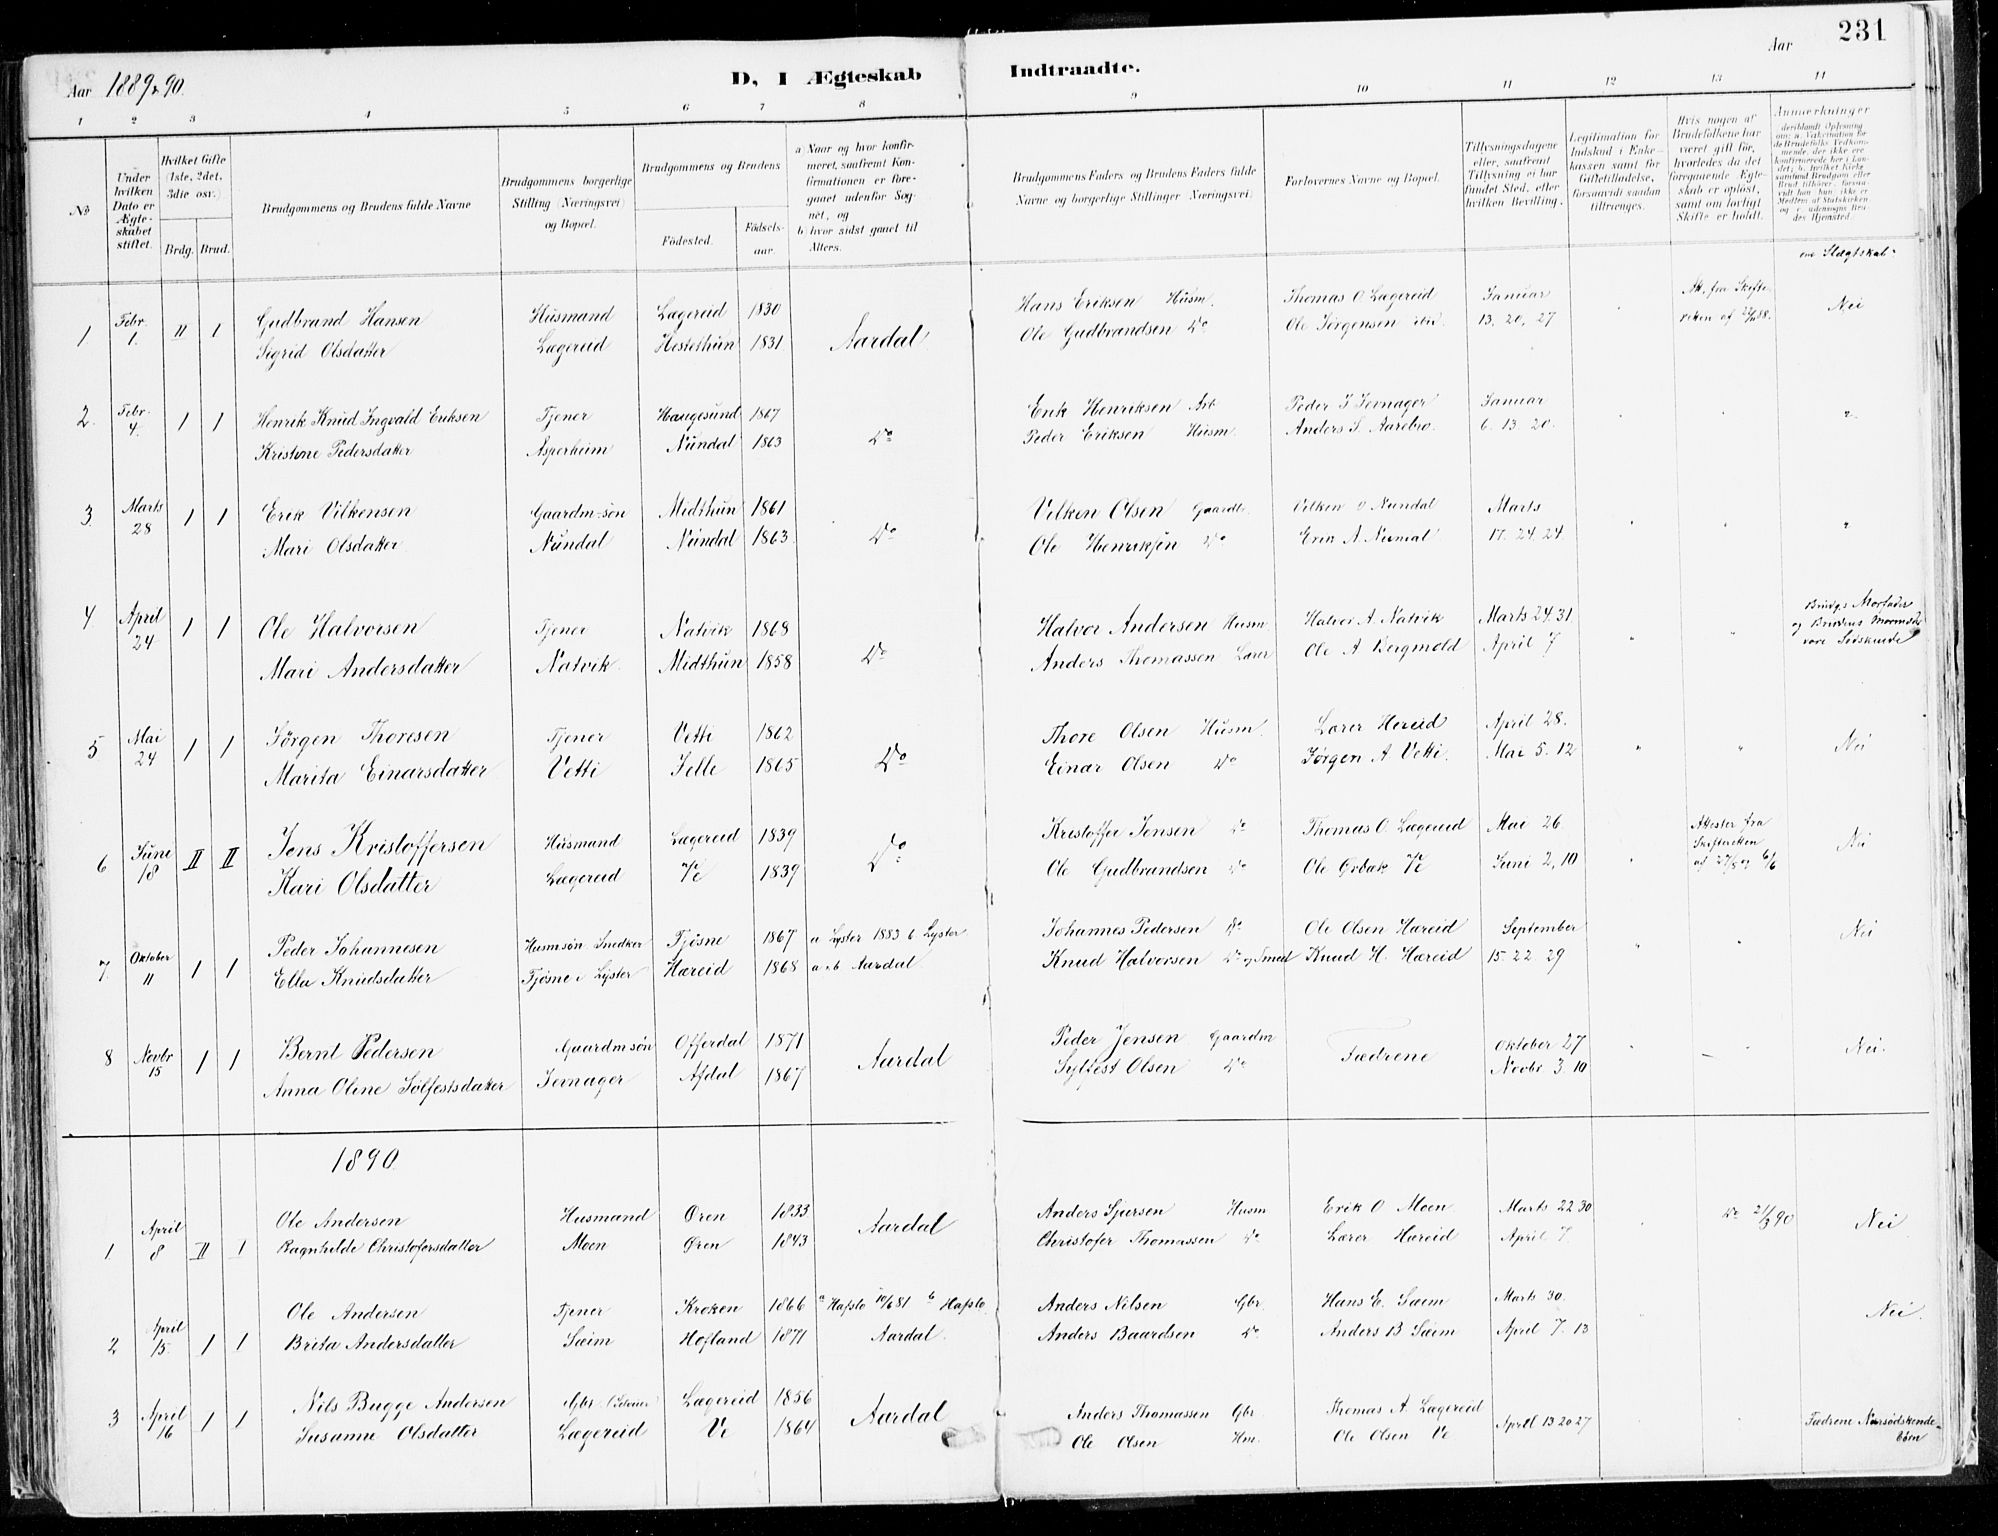 Aar 1889 & 90.
D, I Ægteskab Indtraadte.
Aar 231
1 2 3 4 5 6 7 8 9 10 11 12 13 14
No
Under hvilken Dato er Ægteskabet stiftet.
Hvilket Gifte (1ste, 2det, 3die osv.)
Brdg. Brud.
Brudgommens og Brudens fulde Navne
Brudgommens borgerlige Stilling (Næringsvei) og Bopæl.
Brudgommens og Brudens
Fødested. Fødselsaar.
a) Naar og hvor konfirmeret, saafremt Konfirmationen er foregaaet udenfor Sognet, og
b) hvor sidst gaaet til Alters.
Brudgommens Faders og Brudens Faders fulde Navne og borgerlige Stillinger (Næringsvei)
Forlovernes Navne og Bopæl.
Tillysningsdagene eller, saafremt Tillysning ei har fundet Sted, efter hvilken Bevilling.
Legitimation for Indskud i Enkekassen samt for Giftetilladelse, forsaavidt saadan tiltrænges.
Hvis nogen af Brudefolkene har været gift før, hvorledes da det foregaaende Ægteskab er opløst, samt om lovligt Skifte er holdt.
Anmerkninger
om Slægtskab
1 Febr. 1. II 1 Gudbrand Hansen Husmand Lægereid 1830 Hans Eriksen Husm. Thomas O Lægereid Januar Att. fra Skifte- Nei
Sigrid Olsdatter Lægereid Hestethun 1831 Aardal Ole Gudbrandsen Do Ole Jørgensen ibid. 13, 20, 27
2. Febr. 4. 1 1 Henrik Knud Ingvald Eriksen Tjener Haugesund 1867 Erik Henriksen Arb Peder J Jevnager Januar
Kristine Pedersdatter Asperheim Nundal 1863 Do Peder Eriksen Husm. Anders S. Aarebro. 6. 13. 20.
3 Marts 28 1 1 Erik Vilkensen Gaardm-søn Midthun 1861 Vilken Olsen Gaardb. Vilken O Nundal Marts
Mari Olsdatter Nundal Nundal 1863 Do Ole Henriksen Do Erik A Nundal 17. 24. 24
4 April 24 1 1 Ole Halvorsen Tjener Natvik 1868 Halvor Andersen Husm Halvor A. Natvik Marts 24. 31 Brudgs Morfader
Mari Andersdatter Natvik. Midthun 1858 Do Anders Thomassen Lærer Ole A Bergmold April 7 og Brudens
vare Sødskende
5 Mai 24 1 1 Jørgen Thoresen Tjener Vetti 1862 Thore Olsen Husm. Lærer Hereid April 28.
Marita Einarsdatter Vetti Selle 1865 Do Einar Olsen Do Jørgen A Vetti. Mai 5. 12 Nei
6 June 18 II II Jens Kristoffersen Husmand Lægereid 1839 Do Kristoffer Jensen Do Thomas O. Lægereid Mai 26 Attester fra Skifteretten Nei
Kari Olsdatter Lægereid Ve 1839 Ole Gudbrandsen Do Ole Ve Juni 2, 10 af 27/5 og 6/6
7. Oktober 11 1 1 Peder Johannesen Husmsøn Snedker Fjøsne 1867 a Lyster 1883 b. Lyster Johannes Pedersen Do Ole Olsen Hareid September Nei
Ella Knudsdatter Fjøsne i Lyster Hæreid 1868 a & b Aardal Knud Halvorsen Do og Smed Knud H. Hæreid 15. 22 29
8 Novbr 15 1 1 Bernt Pedersen Gaardmsøn Offerdal 1871 Aardal Peder Jensen Gaardm Fædrene Oktober 27 Nei.
Anna Oline Sølfestsdatter Jevnager Afdal 1867 Sylfest Olsen Do Novbr 3. 10
1890.
1 April 8 II 1 Ole Andersen Husmand Øren 1833 Aardal Anders Sjursen Husm Erik O Moen Marts 22 30 Do 21/3 90 Nei
Ragnhilde Christofersdatter Moen Øren 1843 Christofer Thomassen Do Lærer Hæreid April 7.
2 April 15. 1 1 Ole Andersen Tjener Kroken 1866 a Hafslo 10/6 81 b Hafslo. Anders Nilsen Gbr. Hans E. Sæim Marts 30. Nei.
Brita Andersdatter Sæim Hofland 1871 Aardal. Anders Baardsen Do Anders B Sæim April 7. 13
3 April 16 1 1 Nils Bugge Andersen Gbr Lægereid 1856 Aardal Anders Thomassen Gbr. Thomas A. Lægereid April 13 20 27 Fædrene Nærsødskende-
Susanne Olsdatter Lægereid Ve 1864 Ole Olsen Hm. Ole Olsen Ve børn